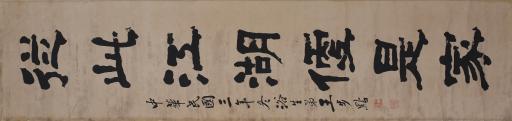 從此江湖便是家
中華民國三年冬